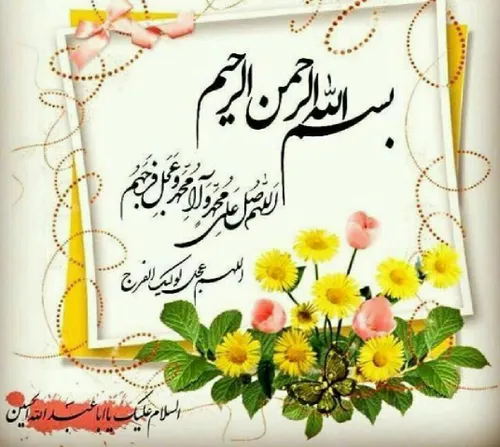 بسم الله الرحمن الرحیم
اللهم صل علی محمد وآل محمد وعجل فرجهم
اللهم عجل لولیک الفرج
السلام علیک یا ابا عبد الله الحسین